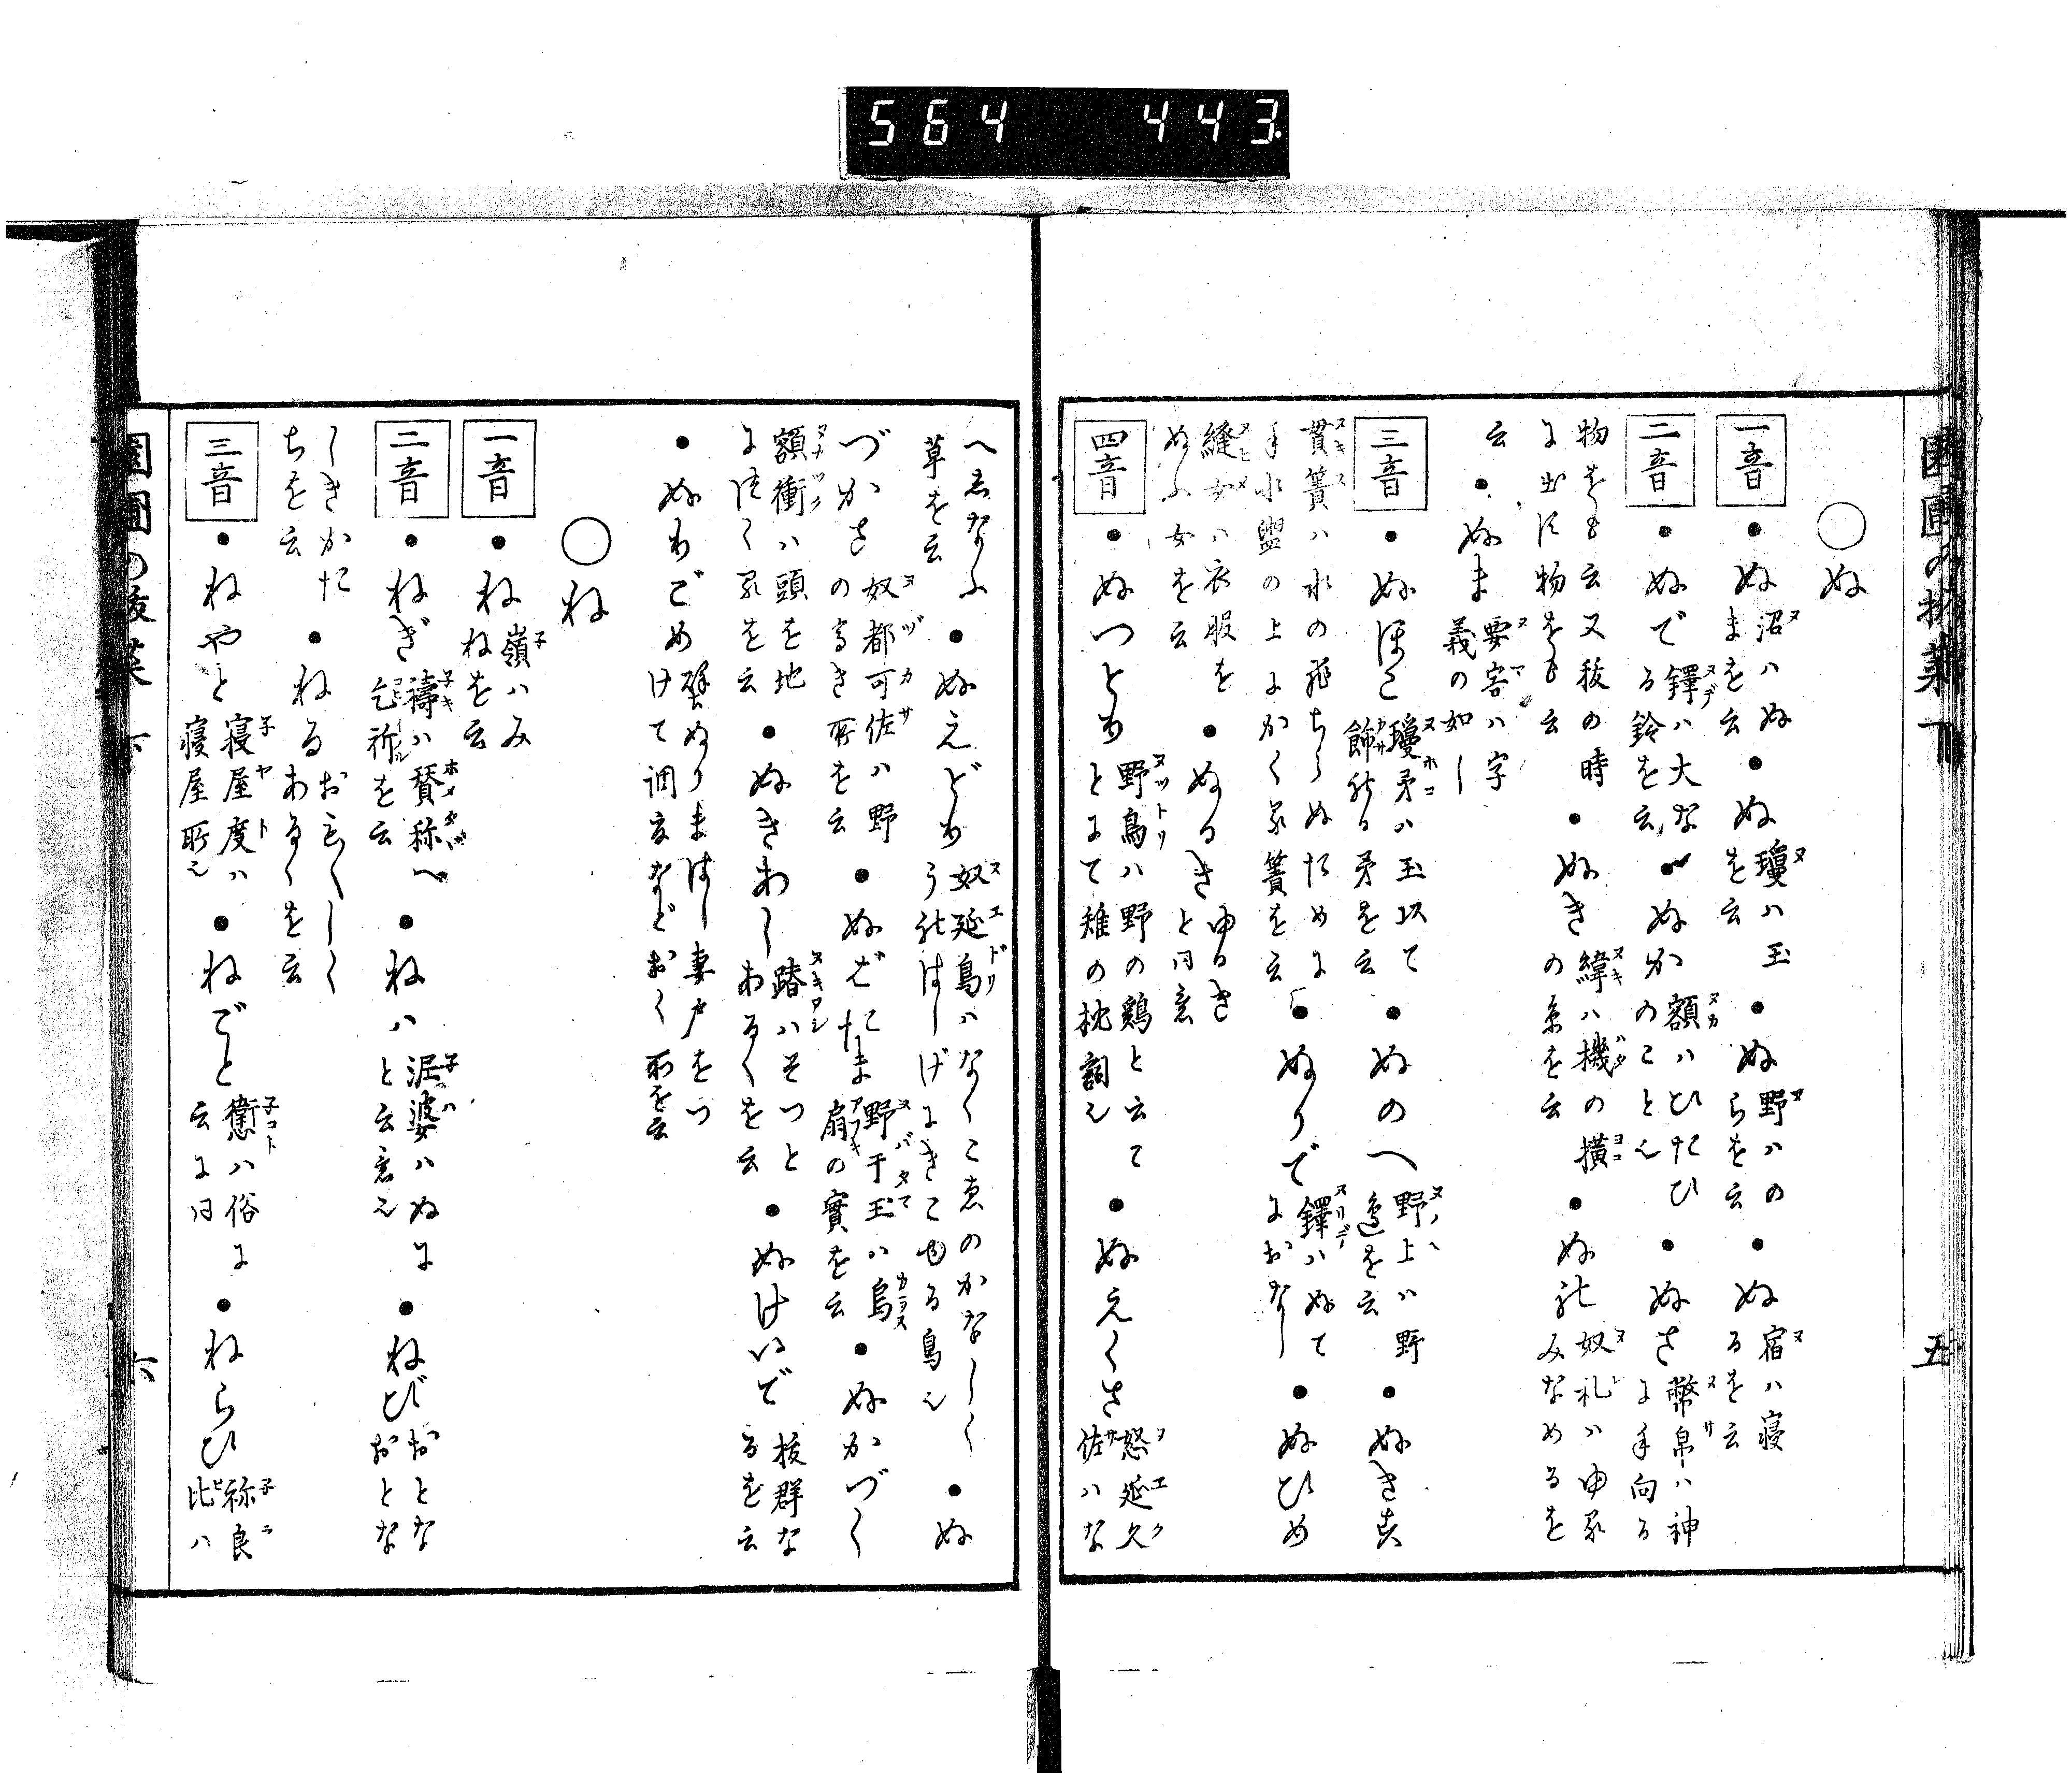 564 443.
五
○ぬ
一音 ●ぬ 沼ハぬまを云 ●ぬ 瓊ハ玉を云 ●ぬ 野ハのらを云 ●ぬ 宿ハ寝るを云
二音 ●ぬで 鐸ハ大なる鈴を云 ●ぬか 額ハひたひのこと也 ●ぬさ 幣帛ハ神に手向る
物をも云又祓の時に出す物をも云 ●ぬき 緯ハ機の横の糸を云 ●ぬれ 奴礼ハ
みなめるを
云 ●ぬま 要害ハ字義の如し
三音 ●ぬほこ 瓊矛ハ玉以て飾れる矛を云 ●ぬのへ 野上ハ野邊を云 ●ぬきす
貫簀ハ水の飛ちらぬために手水盥の上にかくる簀を云 ●ぬりで 鐸ハぬてにおなし ●ぬひめ
縫女ハ衣服をぬふ女を云 ●ぬるき ゆるきと同意
四音 ●ぬつとり 野鳥ハ野の鶏と云てとにて雉の枕詞也 ●ぬえくさ 怒延久佐ハな
へゑなふ草を云 ●ぬえどり 奴延鳥ハなくこゑのかなしく ●ぬ
づかさ 奴都可佐ハ野の高き所を云 ●ぬばたま 野干玉ハ烏扇の實を云 ●ぬかづく
額衝ハ頭を地につくるを云 ●ぬきあし 蹐ハそつとあるくを云 ●ぬけいで 抜群なるを云
●ぬりごめ 壁ぬりまはし妻戸をつけて調度などおく所を云
○ね
一音 ●ね 嶺ハみねを云
二音 ●ねぎ 祷ハ賛称へ乞祈を云 ●ねハ 泥婆ハぬにと云意也 ●ねび おとなおとな
しきかたちを云 ●ねる おもくしくあるくを云
三音 ●ねやと 寝屋度ハ寝屋所也 ●ねごと ハ俗に云に同 ●ねらひ 祢良比ハ
六